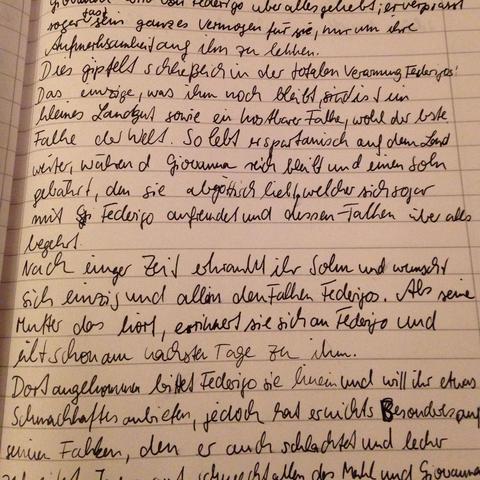 Giovanna wird von Federigo über alles geliebt; er verprasst
sogar fast sein ganzes Vermögen für sie, nur um ihre
Aufmerksamkeit auf ihn zu lenken.
Dies gipfelt schließlich in der totalen Verarmung Federigos:
Das einzige, was ihm noch bleibt, ist ein
kleines Landgut sowie ein kostbarer Falke, wohl der beste
Falke der Welt. So lebt er spartanisch auf dem Land
weiter, während Giovanna reich bleibt und einen Sohn
gebährt, den sie abgöttisch liebt, welcher sich sogar
mit Federigo anfreundet und dessen Falken über alles
begehrt.
Nach einiger Zeit erkrankt ihr Sohn und wünscht
sich einzig und allein den Falken Federigos. Als seine
Mutter das hört, erinnert sie sich an Federigo und
eilt schon am nächsten Tage zu ihm.
Dort angekommen bittet Federigo sie hinein und will ihr etwas
Schmackhaftes anbieten, jedoch hat er nichts Besonderes auf
seinen Falken, den er auch schlachtet und lecker
schmeckt allen das Mahl und Giovanna